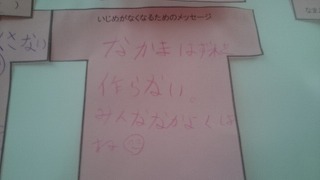 いじめがなくなるためのメッセージ
なかまはずれ
作らない。
みんななかよくしよ
さない
なま